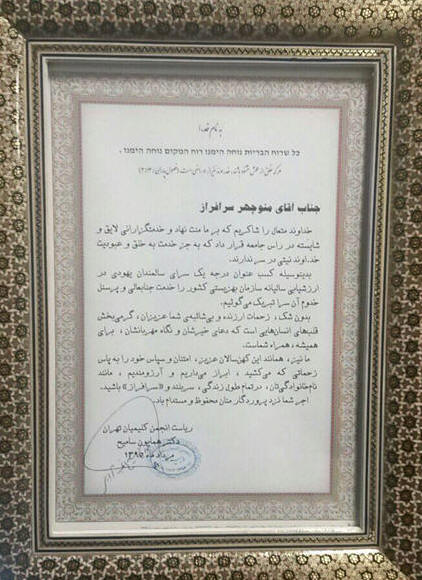 به نام خدا
כל שרוח הבריות נוחה הימנו רוח המקום נוחה הימנו .
هرکه خلق از عملش خشنود باشد، خداوند نیز از او راضی است
جناب آقای منوچهر سرافراز
خداوند متعال را شاکریم که بر ما منت نهاد و خدمتگزارانی لایق و
شایسته در راس جامعه قرار داد که به جز خدمت به خلق و عبودیت
خداوند نیتی در سر ندارند.
بدینوسیله کسب عنوان درجه یک سرای سالمندان یهودی در
ارزشیابی سالیانه سازمان بهزیستی کشور را خدمت جنابعالی و پرسنل
خدوم آن سرا تبریک می‌گوئیم.
بدون شک، زحمات ارزنده و بی‌شائبه‌ی شما عزیزان، گرمی‌بخش
قلب‌های انسان‌هایی است که دعای خیرشان و نگاه مهربانشان، برای
همیشه، همراه شماست.
ما نیز، همانند این کهن‌سالان عزیز، امتنان و سپاس خود را به پاس
زحماتی که می‌کشید، ابراز می‌داریم و آرزومندیم، مانند
نام‌خانوادگی‌تان، در تمام طول زندگی، سربلند و «سرافراز» باشید.
اجر شما نزد پروردگار منان محفوظ و مستدام باد.
ریاست انجمن کلیمیان تهران
دکتر همایون سامیح
مرداد ماه ۱۳۹۵